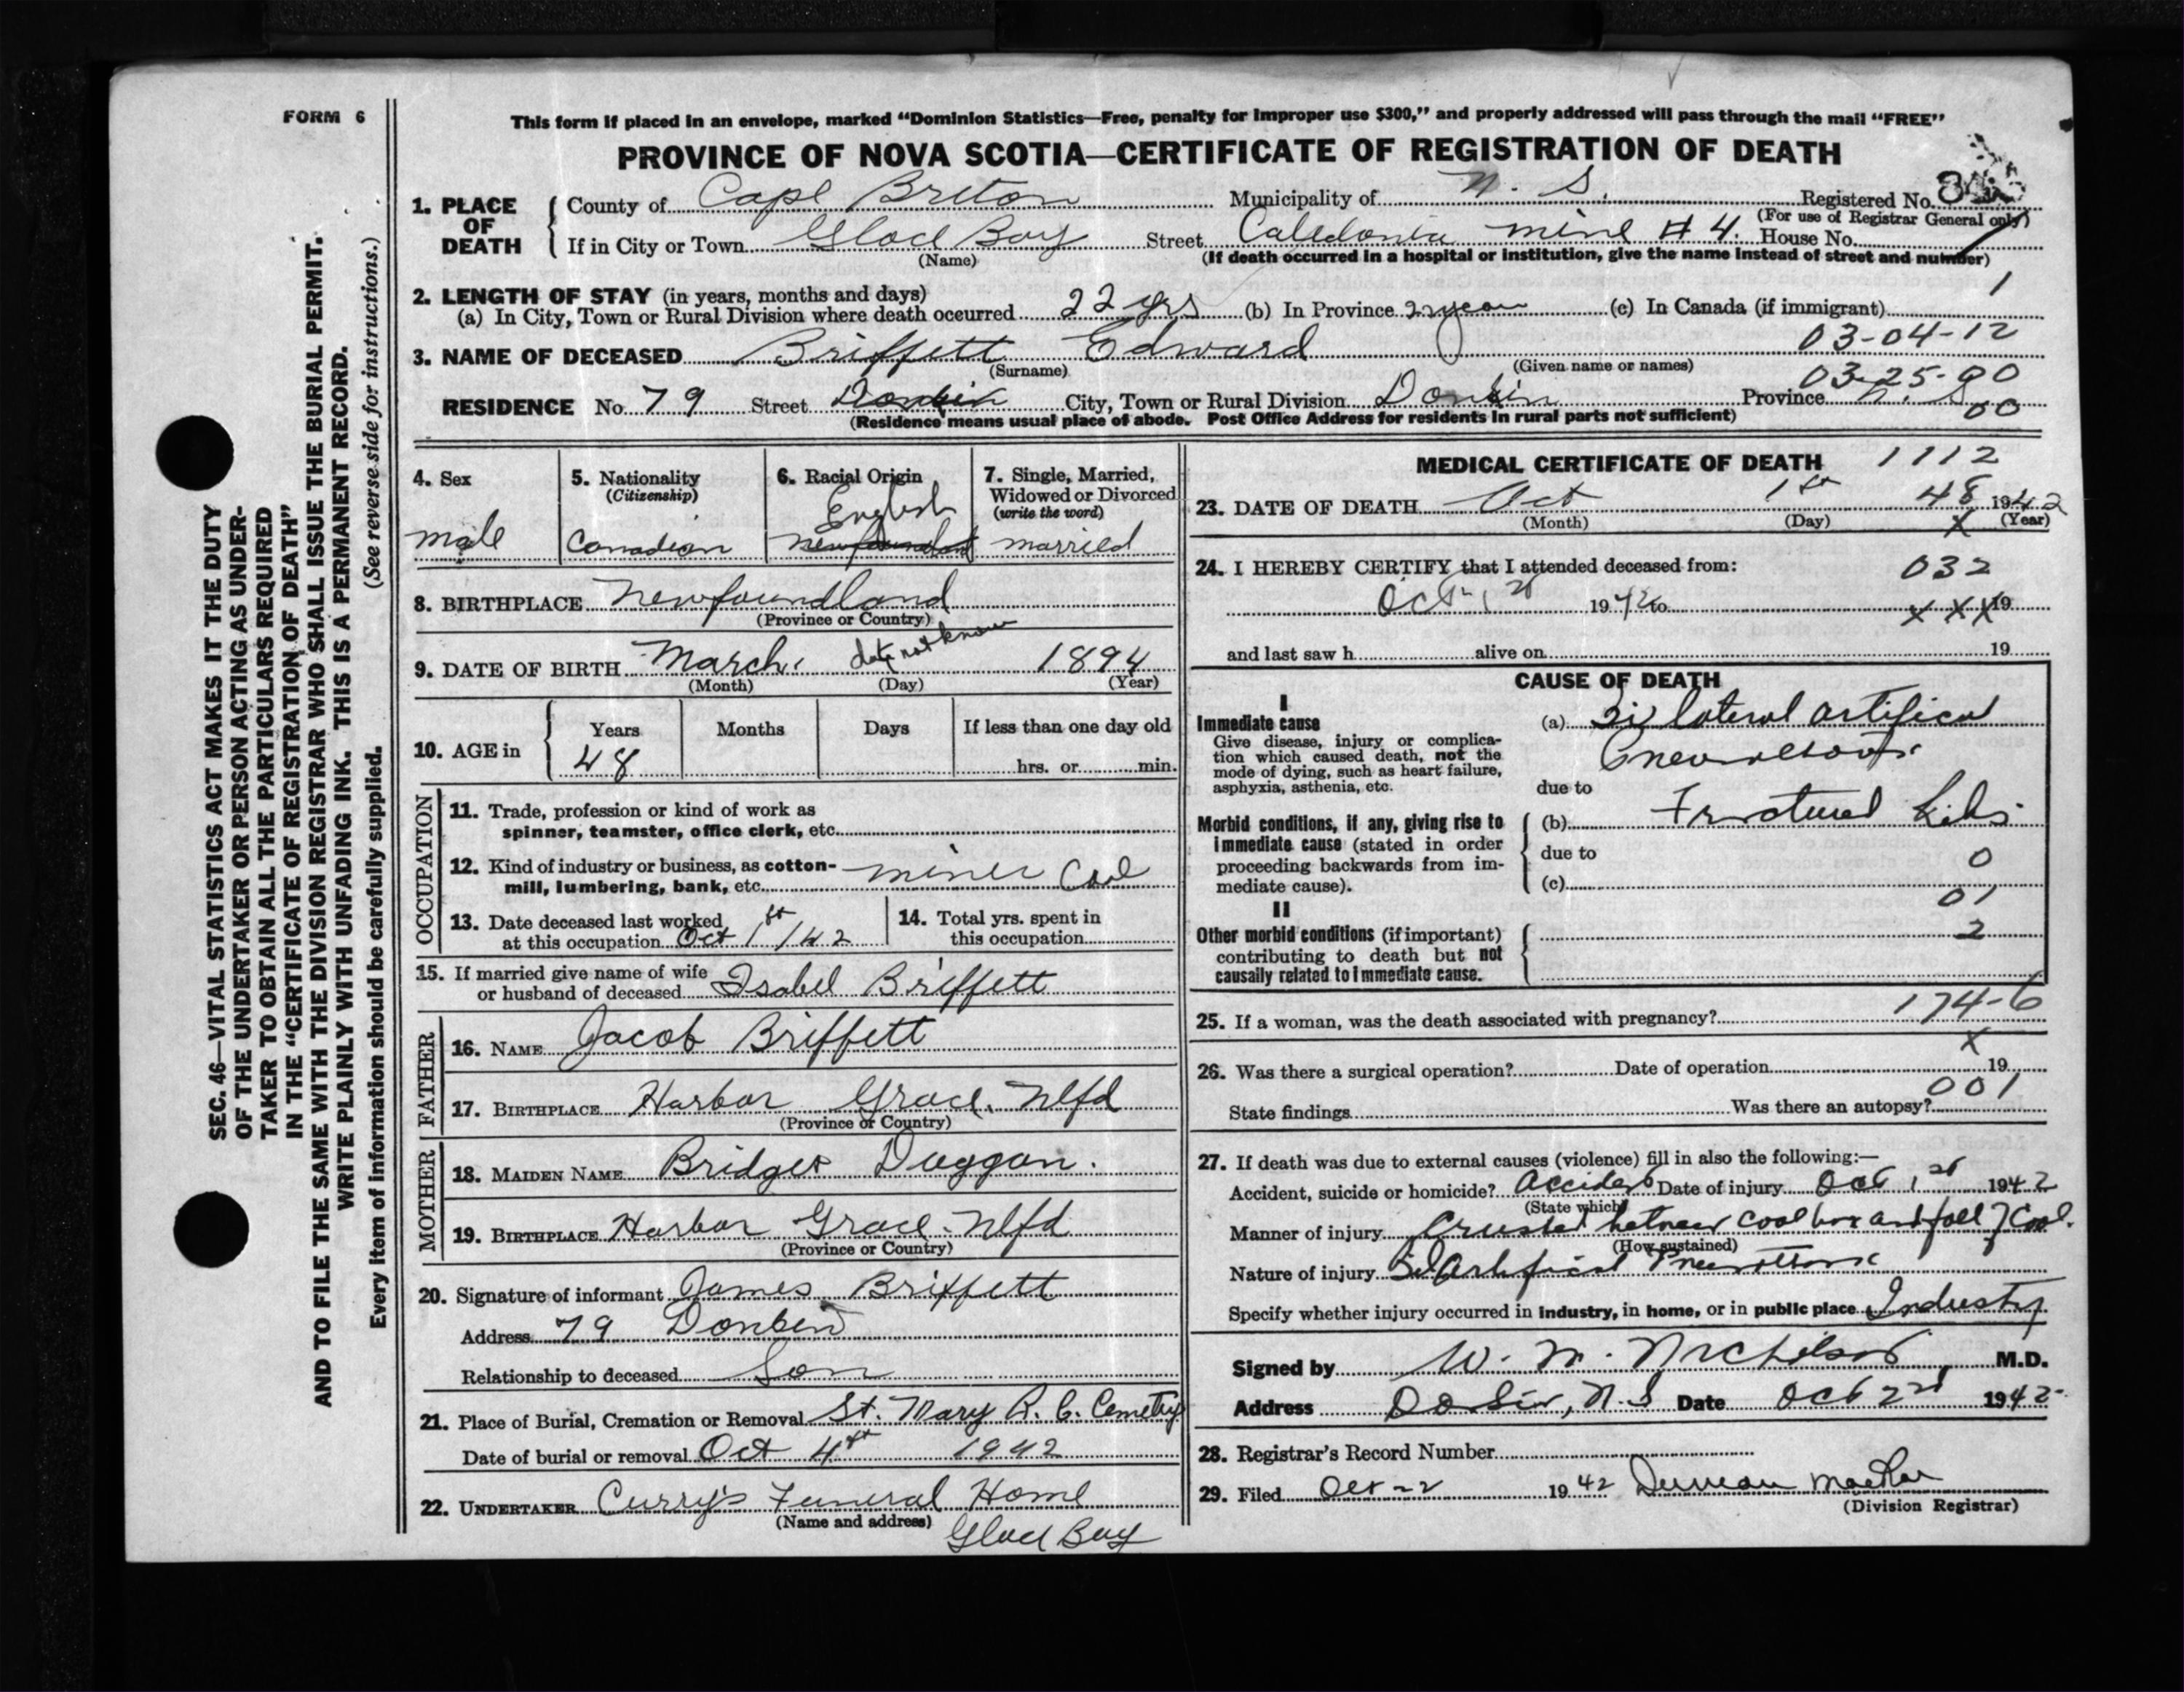 FORM 6
This form if placed in an envelope, marked “Dominion Statistics—Free, penalty for improper use $300,” and properly addressed will pass through the mail “FREE”
PROVINCE OF NOVA SCOTIA—CERTIFICATE OF REGISTRATION OF DEATH
SEC. 46—VITAL STATISTICS ACT MAKES IT THE DUTY
OF THE UNDERTAKER OR PERSON ACTING AS UNDER-
TAKER TO OBTAIN ALL THE PARTICULARS REQUIRED
IN THE “CERTIFICATE OF REGISTRATION OF DEATH”
AND TO FILE THE SAME WITH THE DIVISION REGISTRAR WHO SHALL ISSUE THE BURIAL PERMIT.
WRITE PLAINLY WITH UNFADING INK. THIS IS A PERMANENT RECORD.
Every item of information should be carefully supplied. (See reverse side for instructions.)
1. PLACE OF DEATH
County of Cape Breton Municipality of N. S. Registered No.
(For use of Registrar General only)
If in City or Town Glace Bay Street Caledonia mine # 4. House No.
(Name) (If death occurred in a hospital or institution, give the name instead of street and number)
1
2. LENGTH OF STAY (in years, months and days)
(a) In City, Town or Rural Division where death occurred 22 yrs (b) In Province 22 year (c) In Canada (if immigrant)
03-04-12
3. NAME OF DECEASED Briffett Edward
(Surname) (Given name or names)
03-25-00
RESIDENCE No. 79 Street Donkin City, Town or Rural Division Donkin Province N. S.
00
(Residence means usual place of abode. Post Office Address for residents in rural parts not sufficient)
4. Sex
male
5. Nationality
(Citizenship)
Canadian
6. Racial Origin
English
Newfoundland
7. Single, Married,
Widowed or Divorced
(write the word)
married
8. BIRTHPLACE Newfoundland
(Province or Country)
9. DATE OF BIRTH March date not know 1894
(Month) (Day) (Year)
10. AGE in
Years Months Days If less than one day old
48 hrs. or min.
OCCUPATION
11. Trade, profession or kind of work as
spinner, teamster, office clerk, etc.
12. Kind of industry or business, as cotton-
mill, lumbering, bank, etc. miner Coal
13. Date deceased last worked
at this occupation Oct 1st/42
14. Total yrs. spent in
this occupation
15. If married give name of wife
or husband of deceased Isabel Briffett
FATHER
16. NAME Jacob Briffett
17. BIRTHPLACE Harbor Grace, Nlfd
(Province or Country)
MOTHER
18. MAIDEN NAME Bridget Duggan.
19. BIRTHPLACE Harbor Grace. Nlfd
(Province or Country)
20. Signature of informant James Briffett
Address 79 Donkin
Relationship to deceased Son
21. Place of Burial, Cremation or Removal St. Mary R. C. Cemetry
Date of burial or removal Oct 4th 1942
22. UNDERTAKER Curry's Funeral Home
(Name and address) Glace Bay
MEDICAL CERTIFICATE OF DEATH 1112
23. DATE OF DEATH Oct 1st 48 1942
(Month) (Day) X (Year)
24. I HEREBY CERTIFY that I attended deceased from: 032
Oct 1st 1942 to X X X 19
and last saw h alive on 19
CAUSE OF DEATH
I
Immediate cause
Give disease, injury or complica-
tion which caused death, not the
mode of dying, such as heart failure,
asphyxia, asthenia, etc.
(a) Bi lateral artifical
Pneumothorax
due to
Morbid conditions, if any, giving rise to
immediate cause (stated in order
proceeding backwards from im-
mediate cause).
(b) Fractured Ribs
due to
0
(c)
01
II
Other morbid conditions (if important)
contributing to death but not
causally related to immediate cause.
2
174-6
25. If a woman, was the death associated with pregnancy?
X
26. Was there a surgical operation? Date of operation 19
001
State findings Was there an autopsy?
27. If death was due to external causes (violence) fill in also the following:—
Accident, suicide or homicide? Accident Date of injury Oct 1st 1942
(State which)
Manner of injury Crushed between coal box and fall of Coal.
(How sustained)
Nature of injury Bi Artifical Pneumothorax
Specify whether injury occurred in industry, in home, or in public place Industry
Signed by W. M. Nicholson M.D.
Address Donkin, N.S Date Oct 2nd 1942
28. Registrar's Record Number
29. Filed Oct-22 1942 Duncan
(Division Registrar)